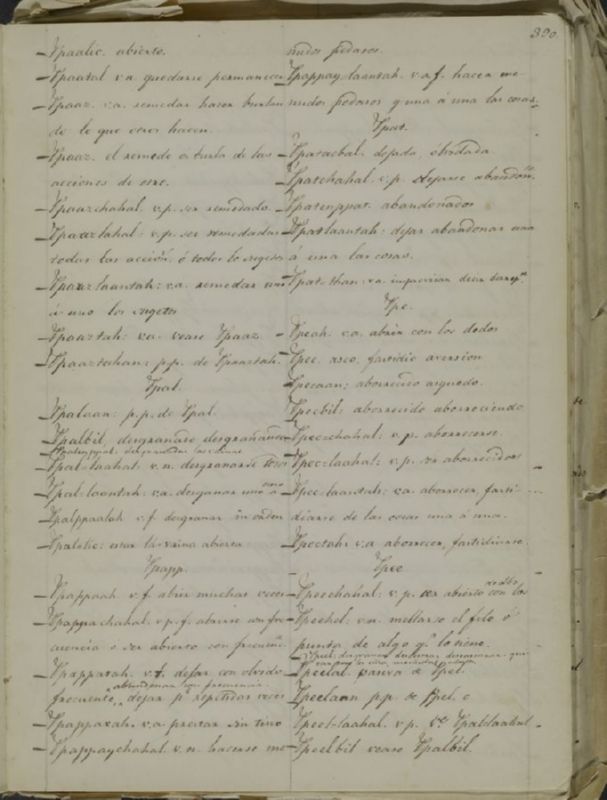 390.
Ppaalic. abierto.
Ppaatal v.a. quedarse permanecer
Ppaaz. v.a. remedar hacer burlas
de lo que otros hacen.
Ppaaz. el remedo ó burla de las
acciones de otro.
Ppaazchahal. v.p. ser remedado.
Ppaazlahal: v.p. ser remedadas
todas las acción. ó todos los sugetos
Ppaazlaantah: v.a. remedar uno
á uno los sugetos
Ppaaztah: v.a. vease Ppaaz.
Ppaaztahan: p.p. de Ppaaztah.
Ppal.
Ppalaan: p.p. de Ppal.
Ppalbil, desgranado desgranandose
Ppal-laahal: v.n. desgranarse todos
Ppal-laantah: v.a. desgranar uno á uno
Ppalppaalah v.f. desgranar in orden
Ppalalic: estar la vaina abierta
Ppapp.
Ppappaah v.f. abrir muchas veces
Ppappachahal. v.p.f. abrirse con fre
cuencia ó ser abierto con frecuen.
Ppappatah. v.f. dejar con olvido
abandonar con frecuencia
frecuente, dejar pr repetidas veces
Ppappaxah. v.a. prestar sin tino
Ppappaychahal. v.n. hacerse me
nudos pedasos.
Ppappay-laantah. v.a.f. hacer me
nudos pedasos q una á una las cosas.
Ppat.
Ppataabal. dejada, olvidada
Ppatchahal. v.p. dejarse abandon.
Ppatenppat. abandonados
Ppatlaantah: dejar abandonar una
á una las cosas.
Ppat-than: va. improvisar decir
Ppe.
Ppeah. v.a. abrir con los dedos
Ppec. asco, fastidio aversion
Ppecaan: aborrecido asqueado.
Ppecbil: aborrecido aborreciendo
Ppecchahal: v.p. aborrecerse.
Ppec-laahal: v.p. ser aborrecidos
Ppec-laantah: v.a. aborrecer, fasti
diarse de las cosas una á una.
Ppectah: v.a. aborrecer, fastidiarse.
Ppee
Ppeechahal: v.p. ser abierto con los dedos
Ppeehel: v.n. mellarse el filo ó
punta de algo qe lo tiene.
Ppeelal pasiva de Ppel.
Ppeelaan p.p. de Ppel. e
Ppeel-laahal. v.p. Ve Ppal-laahal
Ppeelbil vease Ppalbil.